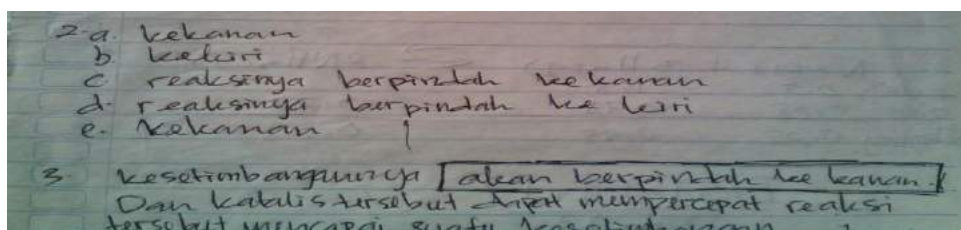 2. a. kekanan
b. kekiri
c reaksinya berpindah kekanan
d. reaksinya berpindah ke kiri
e. kekanan
3. kesetimbangannya akan berpindah ke kanan.
Dan katalis tersebut dapat mempercepat reaksi
tersebut mencapai suatu kesetimbangan